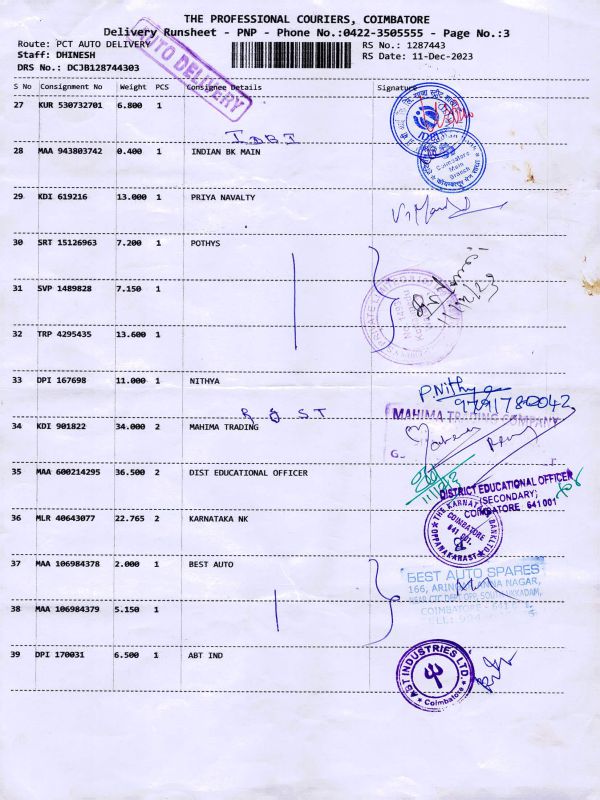 THE PROFESSIONAL COURIERS, COIMBATORE
Delivery Runsheet - PNP - Phone No.:0422-3505555 - Page No.:3
Route: PCT AUTO DELIVERY RS No.: 1287443
Staff: DHINESH RS Date: 11-Dec-2023
DRS No.: DCJB128744303
AUTO DELIVERY
S No Consignment No Weight PCS Consignee Details Signature
27 KUR 530732701 6.800 1
IDBI
28 MAA 943803742 0.400 1 INDIAN BK MAIN
Coimbatore
Main
Branch
29 KDI 619216 13.000 1 PRIYA NAVALTY
30 SRT 15126963 7.200 1 POTHYS
31 SVP 1489828 7.150 1
11/12/23
32 TRP 4295435 13.600 1
33 DPI 167698 11.000 1 NITHYA
P.Nithya
R & S T
MAHIMA TRADING COMPANY
34 KDI 901822 34.000 2 MAHIMA TRADING
G.
35 MAA 600214295 36.500 2 DIST EDUCATIONAL OFFICER
DISTRICT EDUCATIONAL OFFICER
(SECONDARY)
COIMBATORE 641 001
36 MLR 40643077 22.765 2 KARNATAKA NK
COIMBATORE
641 001.
37 MAA 106984378 2.000 1 BEST AUTO
BEST AUTO SPARES
38 MAA 106984379 5.150 1
39 DPI 170031 6.500 1 ABT IND
ABT INDUSTRIES LTD.
Coimbatore